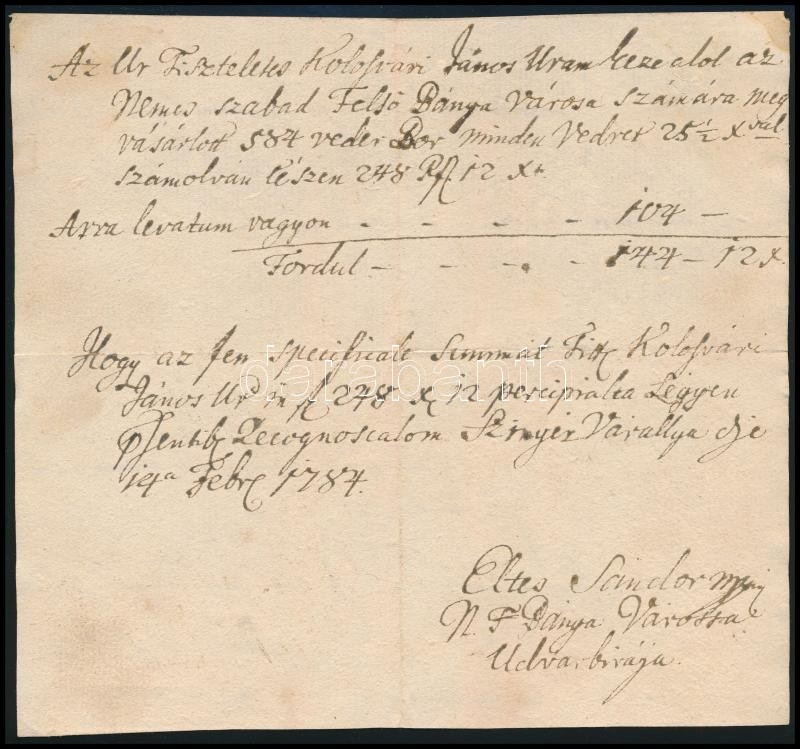 Az Ur Tiszteletes Kolosvári János Uram keze alol az
Nemes szabad Felső Bánya Városa számára meg
vásárlott 584 veder Bor minden Vedret 25½ xval
számolván tészen 248 Rfl 12 xr.
Arra levatum vagyon - - - - - 104 -
Fordul - - - - - 144 - 12 x.
Hogy az fen specificalt Summát Titt Kolosvári
János Ur 248 x 12 percipialta Légyen
Recognoscalom Szinyér Várallya die
14a Febr 1784.
Eltes Sándor mp
N. F Bánya Várossa
Udvarbirája.
darabanth